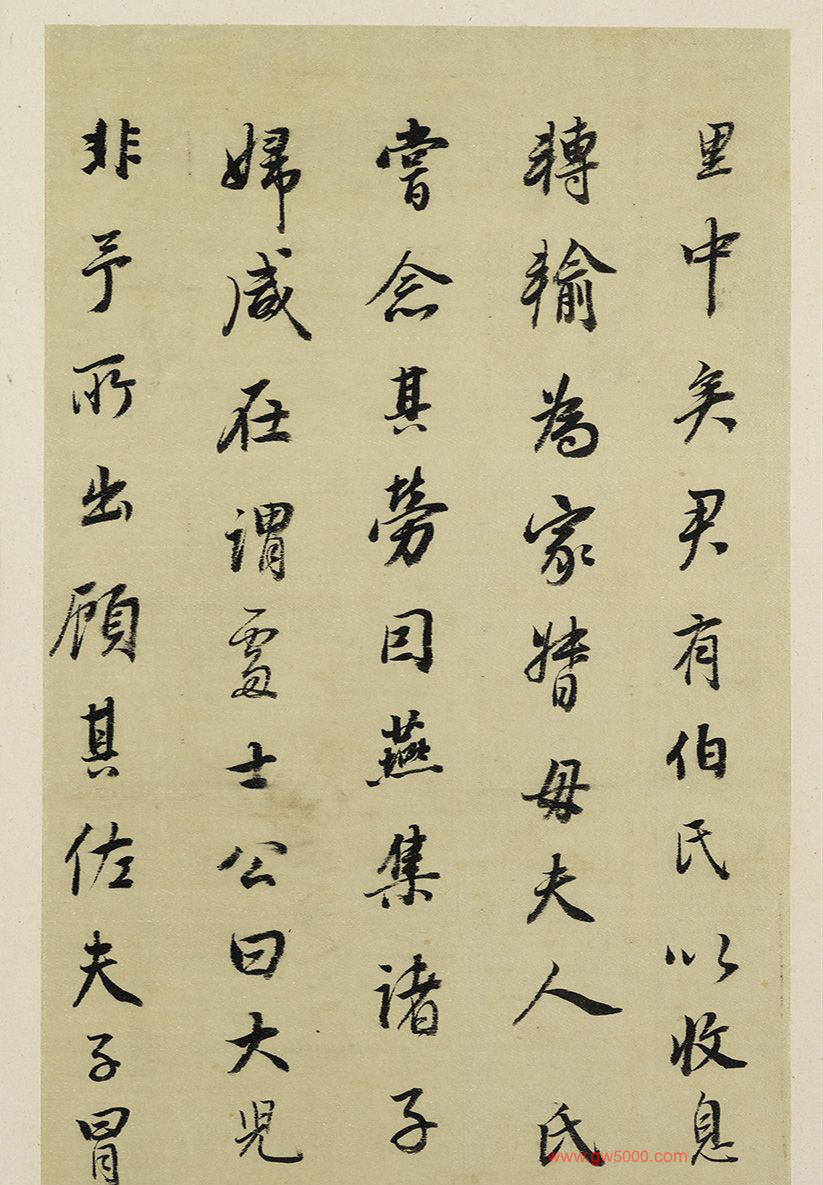 里中矣尹有伯氏以收息
轉輸為家督母夫人氏
嘗念其勞因燕集諸子
婦咸在謂處士公曰大児
非予所出顧其佐夫子冒
www.gw5000.com